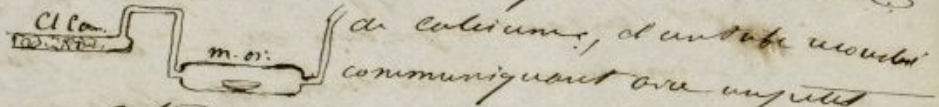 Cl Ca.
m. or.
de calcium, d'un tube recourbé
communiquant avec un petit